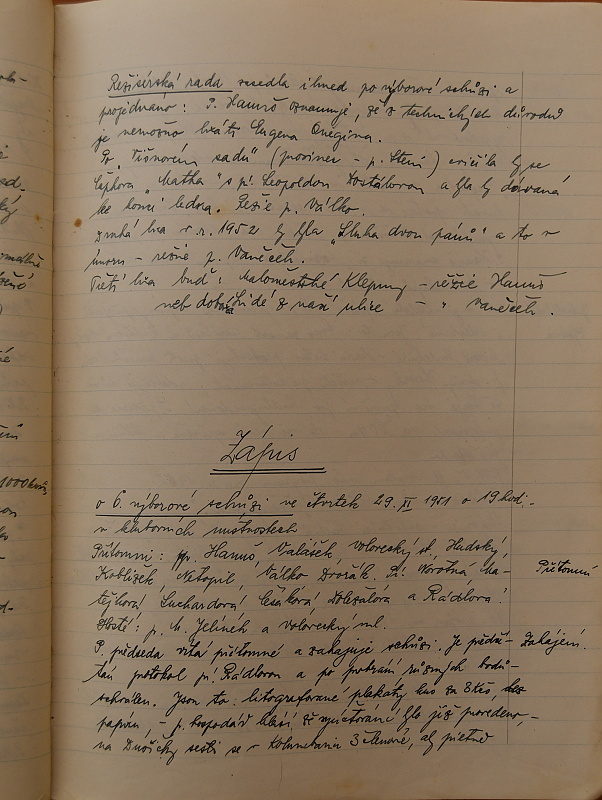 Režisérská rada zasedla ihned po výborové schůzi a
projednáno: P. Hanuš oznamuje, že z technických důvodů
je nemožno hráti Eugena Oněgina.
Po „Višňovém sadu" (prosinec - p. Stení) cvičila by se
Čapkova „Matka" s pí. Leopoldou Dostálovou a byla by dávaná
ke konci ledna. Režie p. Válko.
Druhá hra v r. 1952 by byla „Sluha dvou pánů" a to v
únoru - režie p. Vaněček.
Třetí hra buď: Maloměstské Klepny - režie Hanuš
neb Lidé z naší ulice - " Vaněček.
Zápis
o 6. výborové schůzi ve čtvrtek 29. XI 1951 o 19 hodi-
v klubovních místnostech
Přítomni: pp. Hanuš, Valášek, Volovecký st., Hudský,
Koblížek Netopil, Válko Dvořák. Pí: Novotná, Ma-
tějková Suchardová Dolezalova a Rádlova.
Přítomni
Hosté: p. M. Jelínek a Volovecký ml.
P. předseda vítá přítomné a zahajuje schůzi. Je předč-
Zahájení.
tán protokol pí. Rádlovou a po probrání různých bodů-
schválen. Jsou to: litografované plakáty kus za 8 Kčs, bez
papíru, - p. hospodář hlásí že vyúčtování bylo již provedeno, -
na Dušičky sešli se v Kolumbariu 3 členové, aby pietně
1000 kčs